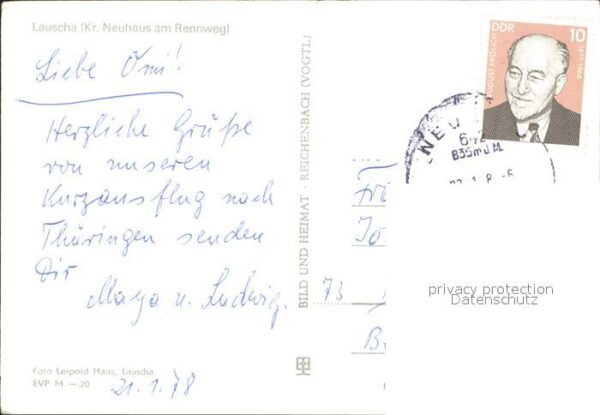 Lauscha (Kr. Neuhaus am Rennweg)
Liebe Omi!
Herzliche Grüße
von unseren
Kurzausflug nach
Thüringen senden
Dir
Maya u. Ludwig.
Foto Leipold Haas, Lauscha
EVP M. —.20
21.1.78
BILD UND HEIMAT · REICHENBACH (VOGTL)
DDR
10
AUGUST FRÖLICH
1877-1966
NEU
835m ü. M.
73
privacy protection
Datenschutz